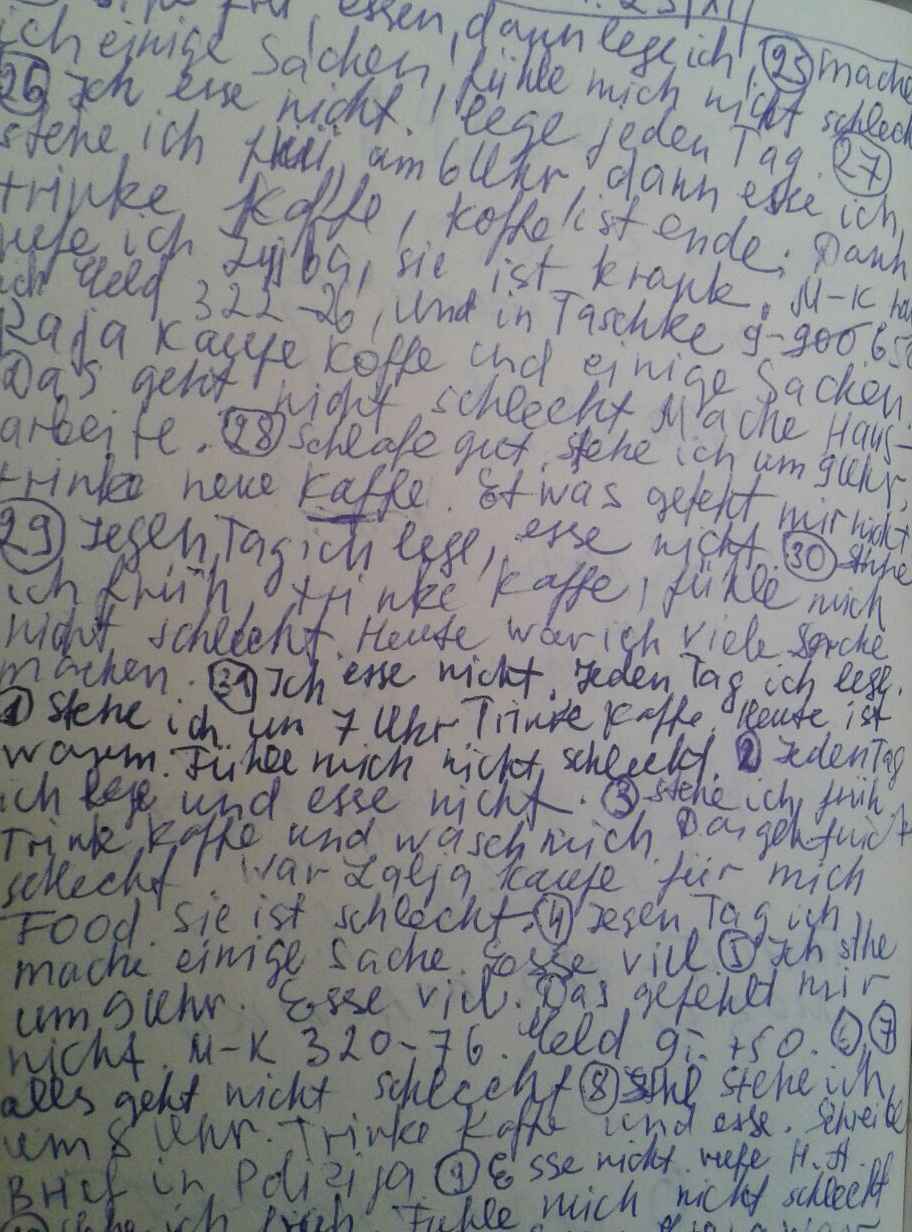 essen, dann lege ich, (25) mache
ich einige Sachen, fühle mich nicht schlech
(26) Ich esse nicht, lege jeden Tag. (27)
stehe ich am 6 Uhr, dann esse ich,
trinke Kaffe, Koffe ist ende. Dann
rufe ich sie ist krank. M-K
ich Geld 322-26, und in Taschke 9-900
Raja Kaufe Koffe und einige Sachen
Das geht nicht schlecht Mache Haus-
arbeite. (28) Schlafe gut. stehe ich um 9 Uhr,
trinke neue Kaffe. Etwas gefehlt mir nicht
(29) Jegen Tag ich lege, esse nicht. (30)
ich früh, trinke Kaffe, fühle mich
nicht schlecht. Heute war ich viele Sache
machen. (31) Ich esse nicht. Jeden Tag ich lege.
(1) Stehe ich um 7 Uhr Trinke Kaffe. Heute ist
warum. Fühle mich nicht schleckt. (2) Jeden Tag
ich lege und esse nicht. (3) stehe ich früh
Trink Kaffe und wasch mich Das geht nicht
schlecht. War Lalja Kaufe für mich
Food. Sie ist schlecht. (4) Jegen Tag ich
mache einige Sache. Esse viel (5) Ich sthe
um 9 Uhr. Esse viel. Das gefehlt mir
nicht. M-K 320-76. Geld 50. (6), (7)
alles geht nicht schlecht (8) stehe ich
um 8 Uhr. Trinke Kaffe und esse. Schreibe
Brief in Polizija (9) Esse nicht. rufe H.A.
stehe ich früh. Fühle mich nicht schlecht